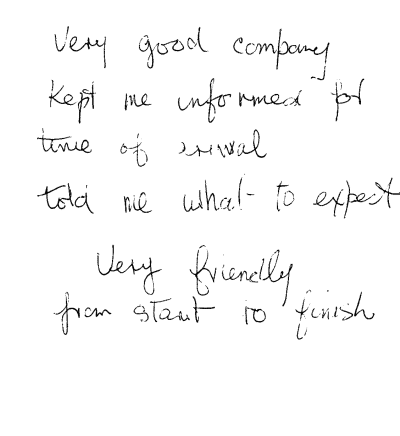 Very good company
Kept me informed for
time of arrival
told me what to expect
Very friendly
from start to finish